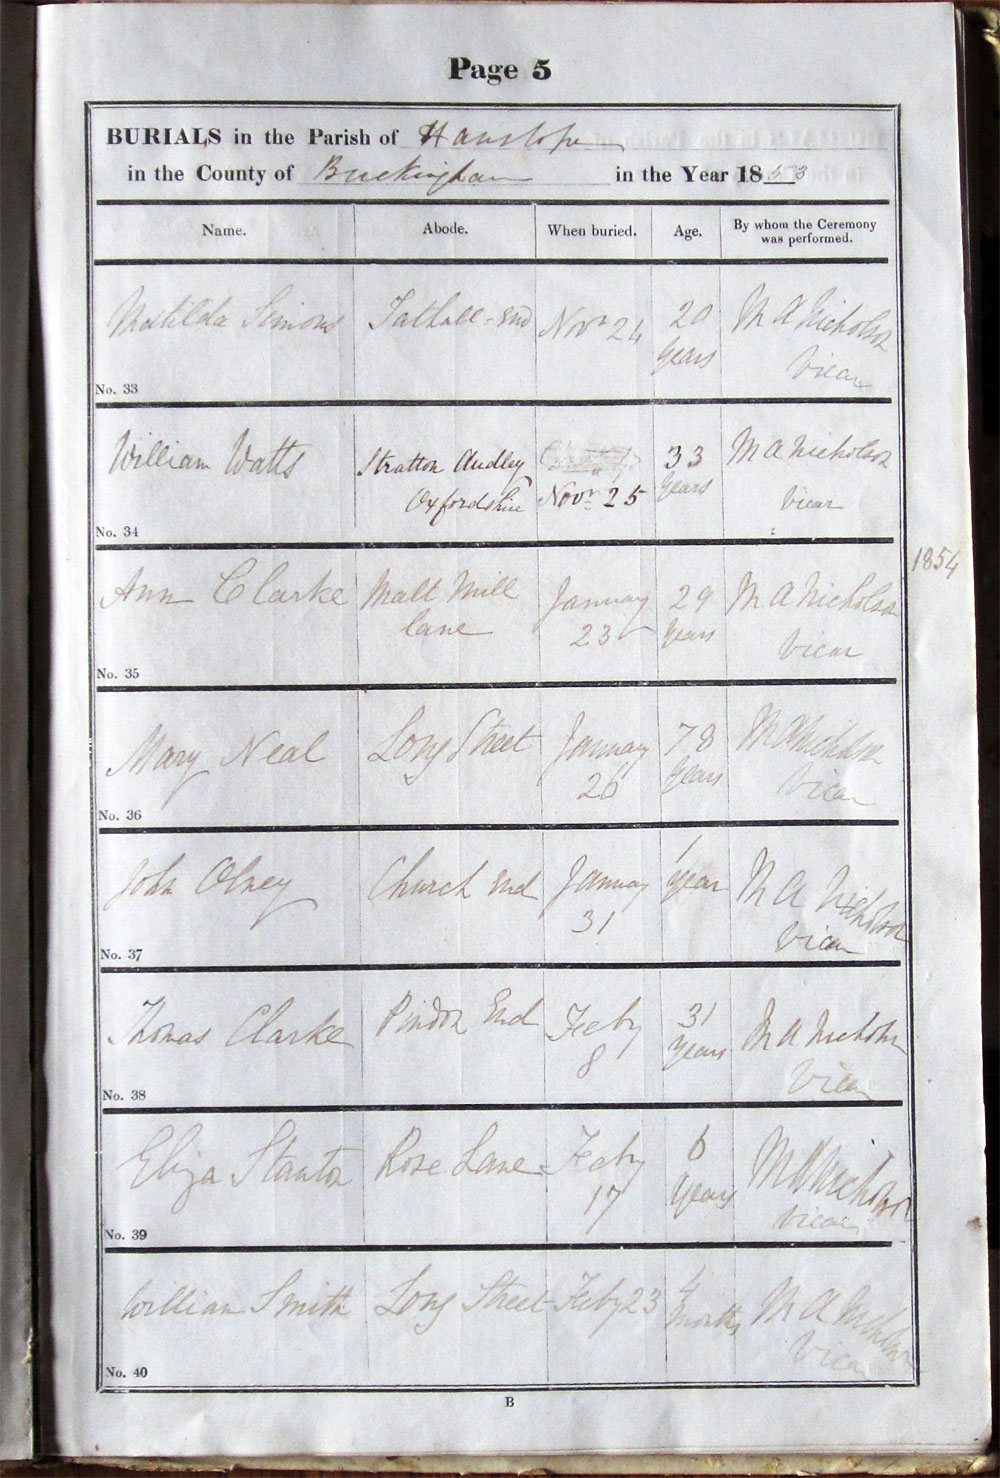 Page 5
BURIALS in the Parish of Hanslope
in the County of Buckingham in the Year 1853
Name. Abode. When buried. Age. By whom the Ceremony was performed.
Matilda Simons Tathall-end Novr 24 20 years M A Nicholson Vicar
No. 33
William Watts Stratton Audley Oxfordshire Novr 25 33 years M A Nicholson Vicar
No. 34
1854
Ann Clarke Malt Mill lane January 23 29 years M A Nicholson Vicar
No. 35
Mary Neal Long Street January 26 78 years M A Nicholson Vicar
No. 36
John Olney Church End January 31 1 year M A Nicholson Vicar
No. 37
Thomas Clarke Pindon End Feby 8 31 years M A Nicholson Vicar
No. 38
Eliza Stanton Rose Lane Feby 17 6 years M A Nicholson Vicar
No. 39
William Smith Long Street Feby 23 4 months M A Nicholson Vicar
No. 40
B